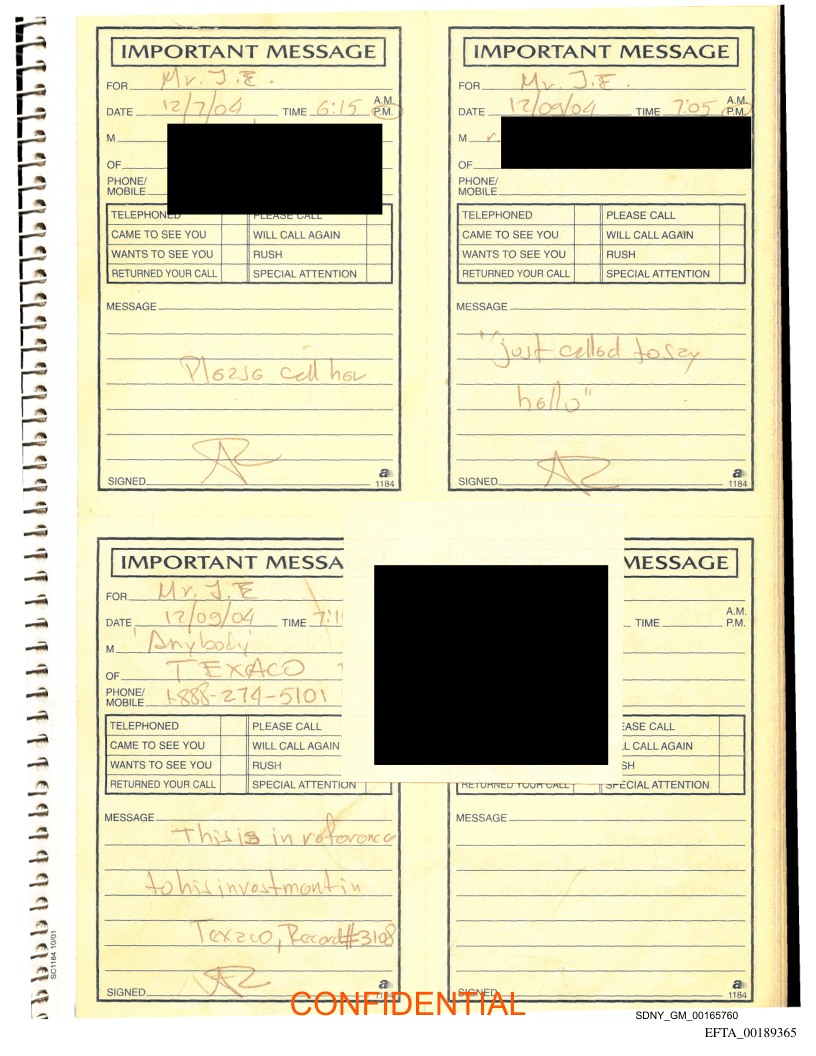 IMPORTANT MESSAGE
FOR Mr. J.E.
DATE 12/7/04 TIME 6:15 A.M. P.M.
M
OF
PHONE/ MOBILE
TELEPHONED PLEASE CALL
CAME TO SEE YOU WILL CALL AGAIN
WANTS TO SEE YOU RUSH
RETURNED YOUR CALL SPECIAL ATTENTION
MESSAGE
Please call her
SIGNED
a 1184
IMPORTANT MESSAGE
FOR Mr. J.E.
DATE 12/09/04 TIME 7:05 A.M. P.M.
M r.
OF
PHONE/ MOBILE
TELEPHONED PLEASE CALL
CAME TO SEE YOU WILL CALL AGAIN
WANTS TO SEE YOU RUSH
RETURNED YOUR CALL SPECIAL ATTENTION
MESSAGE
"just called to say
hello"
SIGNED
a 1184
IMPORTANT MESSA
FOR Mr. J.E
DATE 12/09/04 TIME 7:1
M 'Anybody'
OF TEXACO
PHONE/ MOBILE 1-888-274-5101
TELEPHONED PLEASE CALL
CAME TO SEE YOU WILL CALL AGAIN
WANTS TO SEE YOU RUSH
RETURNED YOUR CALL SPECIAL ATTENTION
MESSAGE
This is in reference
to his investment in
Texaco, Record #3108
SIGNED
MESSAGE
TIME A.M. P.M.
EASE CALL
L CALL AGAIN
SH
RETURNED YOUR CALL SPECIAL ATTENTION
MESSAGE
SIGNED
a 1184
SC1184 10/01
CONFIDENTIAL
SDNY_GM_00165760
EFTA_00189365